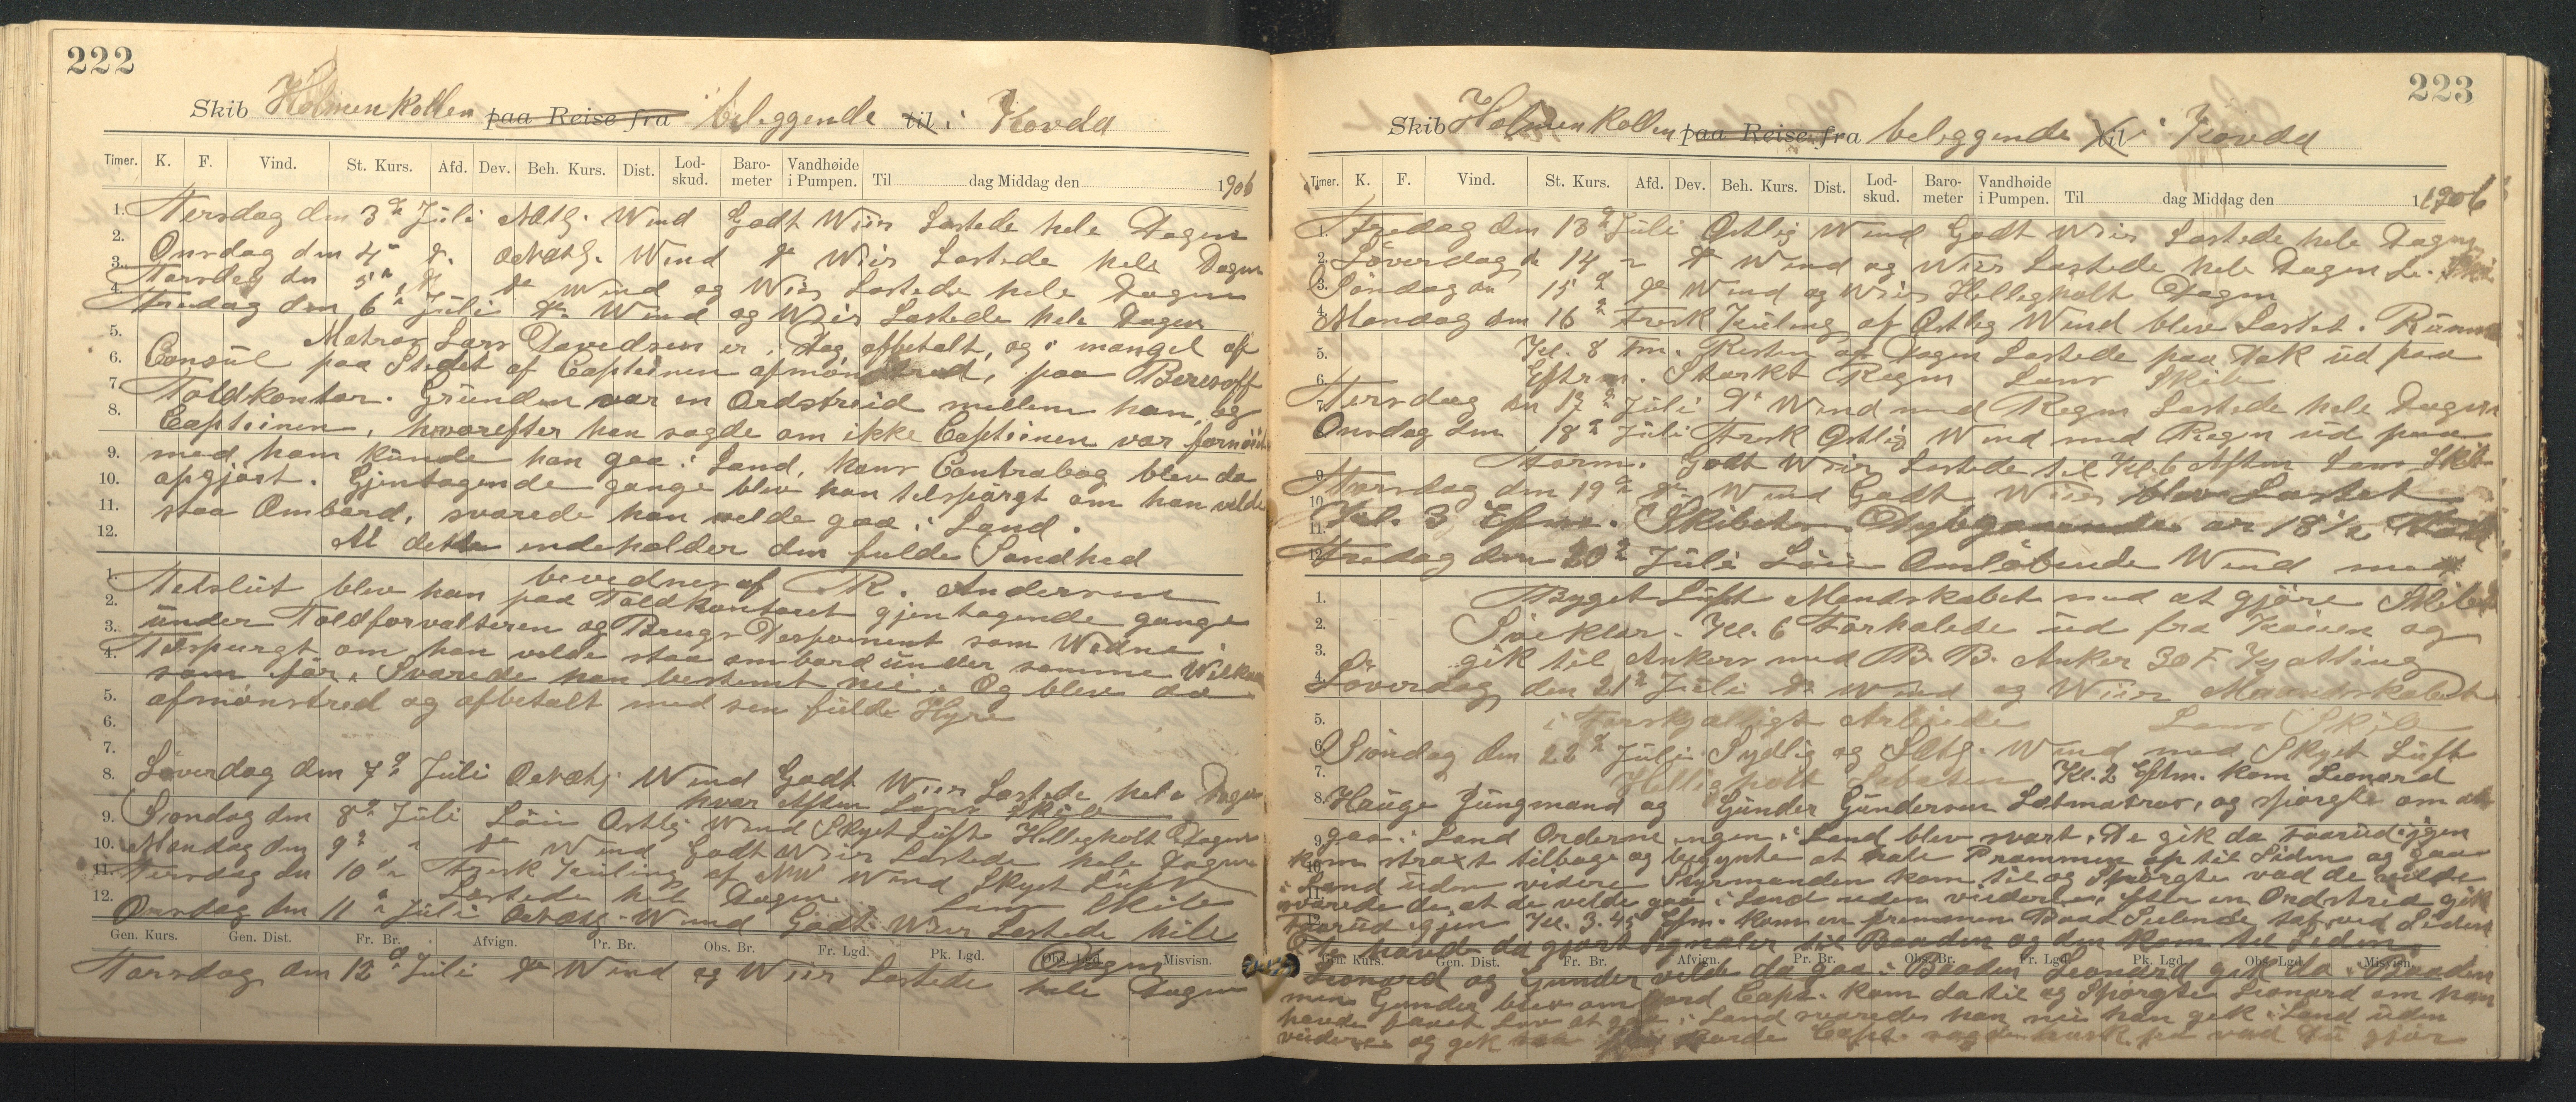 222
Skib Holmenkollen paa Reise fra beleggende til i Kovda
Timer. K. F. Vind. St. Kurs. Afd. Dev. Beh. Kurs. Dist. Lod-skud. Baro-meter Vandhøide i Pumpen. Til dag Middag den 1906
1. Tersdag den 3d Juli NEtg. Wind Godt Wiir Lastede hele Dagen
2. Onsdag den 4 d. ONEtg. Wind do Wiir Lastede hele Dagen
3. Torsdag den 5 d. do Wind og Wiir Lastede hele Dagen
4. Fredag den 6 Juli do Wind og Wiir Lastede hele Dagen
5. Matros Lars Davedsen er i dag afbetalt, og i mangel af
6. Consul paa Stedet af Capteinen afmönstred, paa Beresoff
7. Toldkontor. Grunden var en Ordstreid mellem han, og
8. Capteinen, hvorefter han sagde om ikke Capteinen var fornöiet
9. med ham kunde han gaa i Land, hans Contrabog blev da
10. opgjort. Gjentagende gange blev han tilspörgt om han vilde
11. staa Ombord, svarede han velde gaa i Land.
12. At dette indeholder den fulde Sandhed
bevedner af R. Andersen
1. Tilslut blev han paa Toldkontoret gjentagende gange
2. under Toldforvalteren og Brugs Disponent som Wedne
3. Tilspurgt om han velde staa ombord under samme Wilkaar
4. som før, Svarede han bestemt nei. Og blev da
5. afmönstred og afbetalt med sen fulde Hyre
6.
7.
8. Löverdag den 7d Juli Ostetg Wind Godt Wiir Lastede hele Dagen
hver Aften Lens Skib
9. Söndag den 8d Juli Löi Ostlig Wind Skyet Luft Helligholt Dagen
10. Mandag den 9d " do Wind Godt Wiir Lastede hele Dagen
11. Tersdag den 10d " Frisk Kuling af NW Wind Skyet Luft
Lastede hele Dagen Lens Skib
12. Onsdag den 11 Juli Ostetg Wind Godt Wiir Lastede hele
Gen. Kurs. Gen. Dist. Fr. Br. Afvign. Pr. Br. Obs. Br. Fr. Lgd. Pk. Lgd. Obs. Lgd. Misvisn.
Dagen
Torsdag den 12d Juli do Wind og Wiir Lastede hele Dagen
223
Skib Holmenkollen paa Reise fra beleggende til i Kovda
Timer. K. F. Vind. St. Kurs. Afd. Dev. Beh. Kurs. Dist. Lod-skud. Baro-meter Vandhøide i Pumpen. Til dag Middag den 1906
1. Fredag den 13d Juli Ostlig Wind Godt Wiir Lastede hele Dagen
2. Löverdag d 14 " do Wind og Wiir Lastede hele Dagen Le. Skib
3. Söndag den 15d do Wind og Wiir Helligholt Dagen
4. Mandag den 16d Frisk Kuling af Ostlig Wind blev Lastet i Rummet
5. Kl. 8 Fm. Resten af Dagen Lastede paa Dæk ud paa
6. Eftrm. Stærkt Regn Lens Skib
7. Tersdag den 17d Juli do Wind med Regn Lastede hele Dagen
8. Onsdag den 18d Juli Frisk Ostlig Wind med Regn ud paa
Form. Godt Wiir Lastede til Kl. 6 Aften Lens Skib
9. Torsdag den 19d do Wind Godt Wiir blev Lastet
10. Kl. 3 Eftm. Skibets Dybgaaende er 18½ Fod
12. Fredag den 20d Juli Löi Omlöbende Wind med
1. Byget Luft Mandskabet med at gjöre Skibet
2. Söeklar. Kl. 6 Forhalede ud fra Kaien og
3. gik til Ankers med B. B. Anker 30 F. Kjætting
4. Löverdag den 21d Juli do Wind og Wiir Mandskabet
5. i Forskjælligt Arbeide Lens Skib
6. Söndag den 22d Juli Sydlig og SEtg. Wind med Skyet Luft
7. Helligholt Sabaten Kl. 2 Eftm. kom Leonard
8. Hauge Jungmand og Gunder Gundersen Letmatros, og spörgte om at
9. gaa i Land Orderne ingen i Land blev svart. De gik da forud igjen
kom straxt tilbage og begynte at hale Prammen op til Siden og gaa
i Land uden videre Styrmanden kom til og Spörgte vad de velde
svarede de at de velde gaa i Land uden videre, efter en Ordstrid gik
Forud igjen Kl. 3.45 Efm. kom en fremmen Baad Seilende tæt ved Siden
De havde da gjort Signaler til Baaden og den kom til Siden
Gen. Kurs. Gen. Dist. Fr. Br. Afvign. Pr. Br. Obs. Br. Fr. Lgd. Pk. Lgd. Obs. Lgd. Misvisn.
Leonard og Gunder velde da gaa i Baaden Leonard gik da i Baaden
men Gunder blev om Bord, Capt. kom da til og Spörgte Leonard om han
havde faaet Lov at gaa i Land svarede han nei han gik i Land uden
videre og gik Capt. sagde husk paa vad du gjör